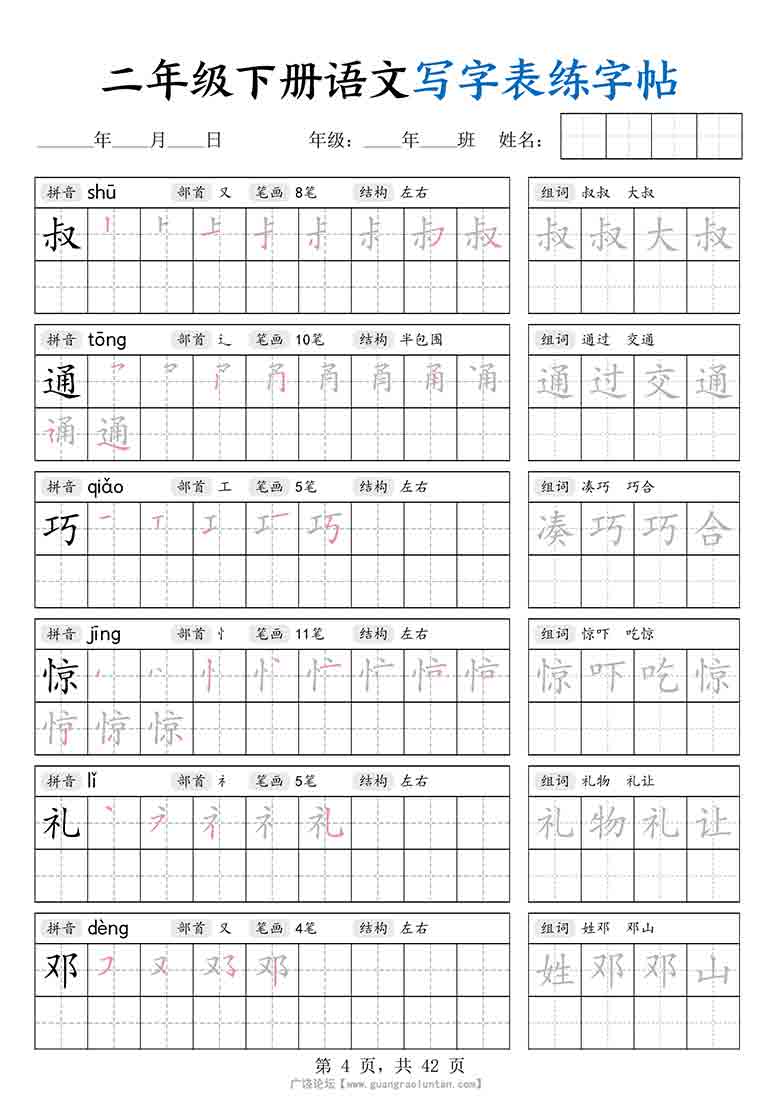 二年级下册语文写字表练字帖
____年___月___日 年级：___年___班 姓名：
拼音 shū 部首 又 笔画 8笔 结构 左右
组词 叔叔 大叔
叔
叔叔大叔
拼音 tōng 部首 辶 笔画 10笔 结构 半包围
组词 通过 交通
通
通过交通
拼音 qiǎo 部首 工 笔画 5笔 结构 左右
组词 凑巧 巧合
巧
凑巧巧合
拼音 jīng 部首 忄 笔画 11笔 结构 左右
组词 惊吓 吃惊
惊
惊吓吃惊
拼音 lǐ 部首 礻 笔画 5笔 结构 左右
组词 礼物 礼让
礼
礼物礼让
拼音 dèng 部首 又 笔画 4笔 结构 左右
组词 姓邓 邓山
邓
姓邓邓山
第 4 页，共 42 页
广饶论坛【www.guangraoluntan.com】